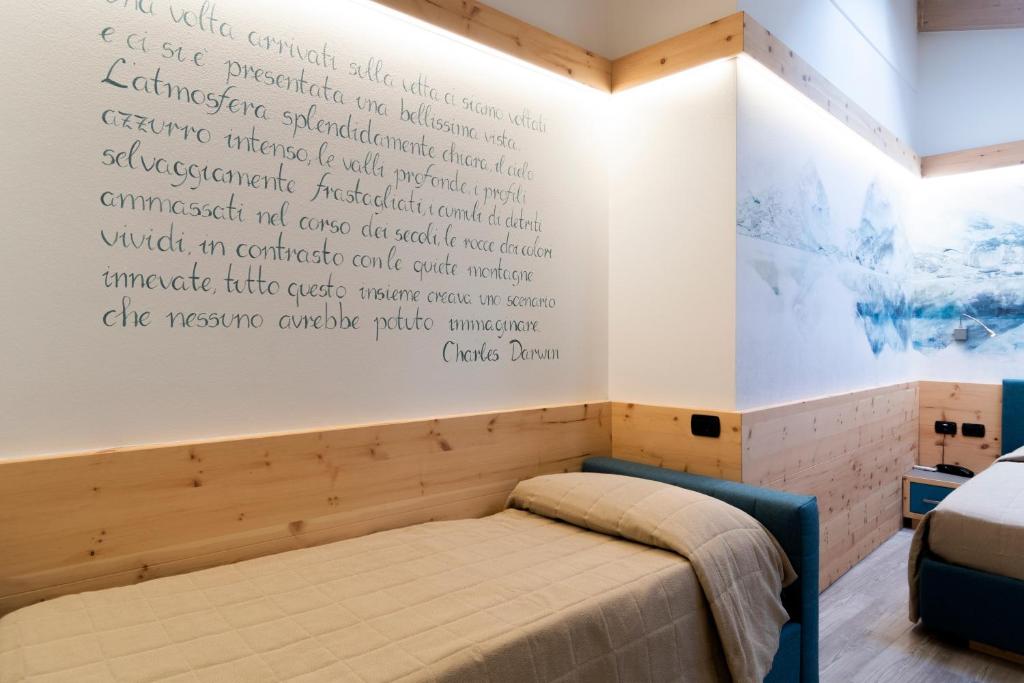 Una volta arrivati sulla vetta ci siamo voltati
e ci si è presentata una bellissima vista.
L'atmosfera splendidamente chiara, il cielo
azzurro intenso, le valli profonde, i profili
selvaggiamente frastagliati, i cumuli di detriti
ammassati nel corso dei secoli, le rocce dai colori
vividi, in contrasto con le quiete montagne
innevate, tutto questo insieme creava uno scenario
che nessuno avrebbe potuto immaginare.
Charles Darwin